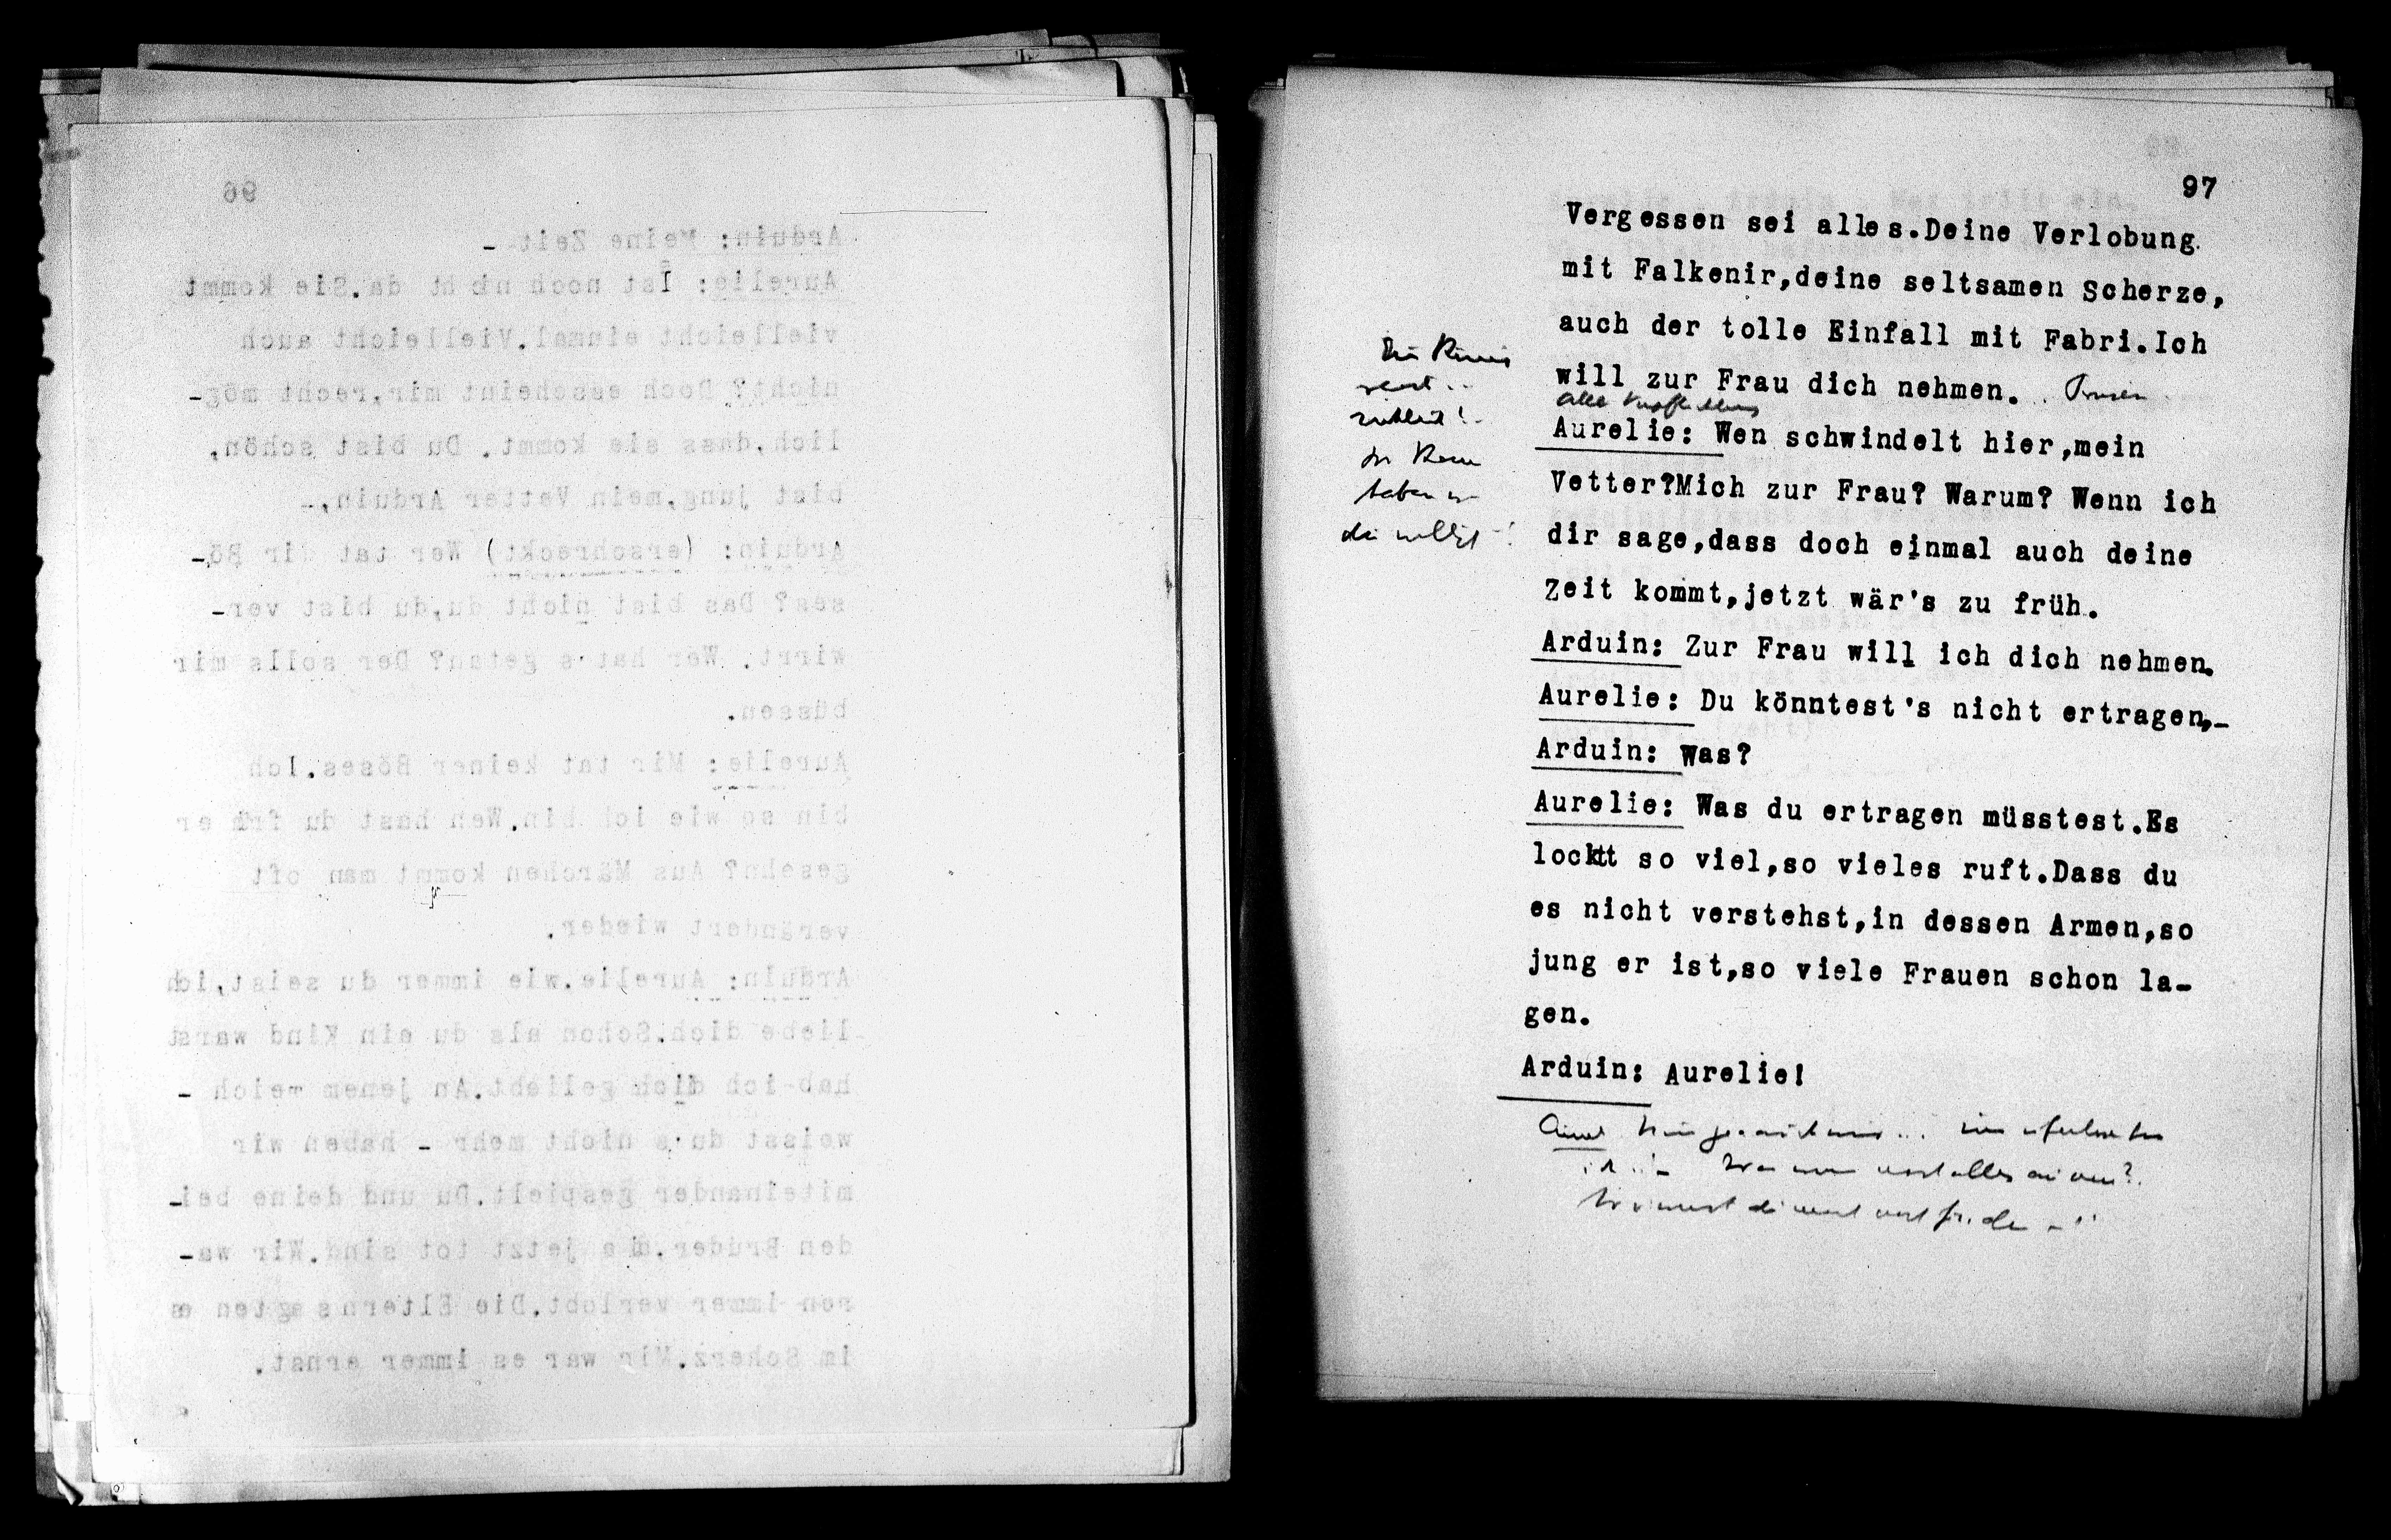 96
Arduin: Meine Zeit -
Aurelie: Ist noch nicht da.Sie kommt
vielleicht einmal.Vielleicht auch
nicht? Doch esscheint mir,recht mög-
lich,dass sie kommt. Du bist schön,
bist jung,mein Vetter Arduin,-
Arduin: (erschreckt) Wer tat dir Bö-
ses? Das bist nicht du,du bist ver-
wirrt. Wer hat's getan? Der solls mir
büssen.
Aurelie: Mir tat keiner Böses.Ich
bin so wie ich bin.Wen hast du früher
gesehn? Aus Märchen kommt man oft
verändert wieder.
Arduin: Aurelie.wie immer du seist,ich
liebe dich.Schon als du ein Kind warst
hab ich dich geliebt.An jenem Teich -
weisst du's nicht mehr - haben wir
miteinander gespielt.Du und deine bei-
den Brüder.die jetzt tot sind.Wir wa-
ren immer verlobt.Die Eltern sagten es
im Scherz.Mir war es immer ernst.
97
Vergessen sei alles.Deine Verlobung
mit Falkenir,deine seltsamen Scherze,
auch der tolle Einfall mit Fabri.Ich
will zur Frau dich nehmen.
Aurelie: Wen schwindelt hier,mein
Vetter?Mich zur Frau? Warum? Wenn ich
dir sage,dass doch einmal auch deine
Zeit kommt,jetzt wär's zu früh.
Arduin: Zur Frau will ich dich nehmen.
Aurelie: Du könntest's nicht ertragen,-
Arduin: Was?
Aurelie: Was du ertragen müsstest.Es
locktt so viel,so vieles ruft.Dass du
es nicht verstehst,in dessen Armen,so
jung er ist,so viele Frauen schon la-
gen.
Arduin: Aurelie!